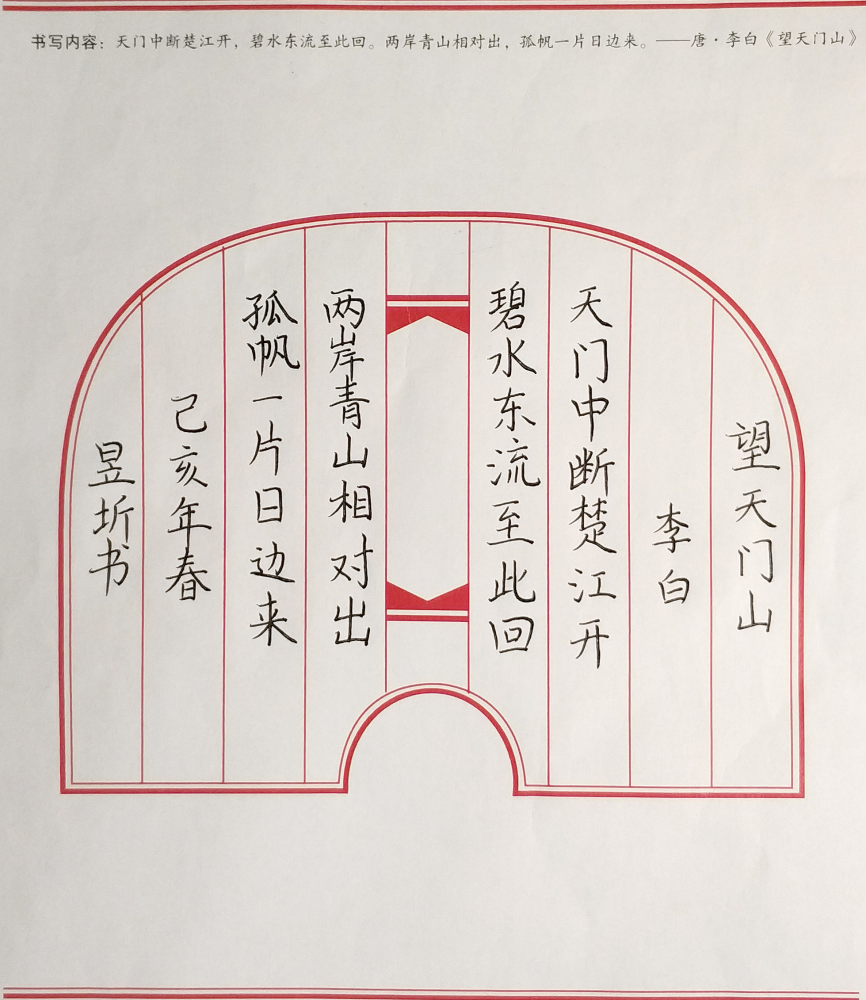 书写内容：天门中断楚江开，碧水东流至此回。两岸青山相对出，孤帆一片日边来。——唐·李白《望天门山》
望天门山
李白
天门中断楚江开
碧水东流至此回
两岸青山相对出
孤帆一片日边来
己亥年春
昱圻书